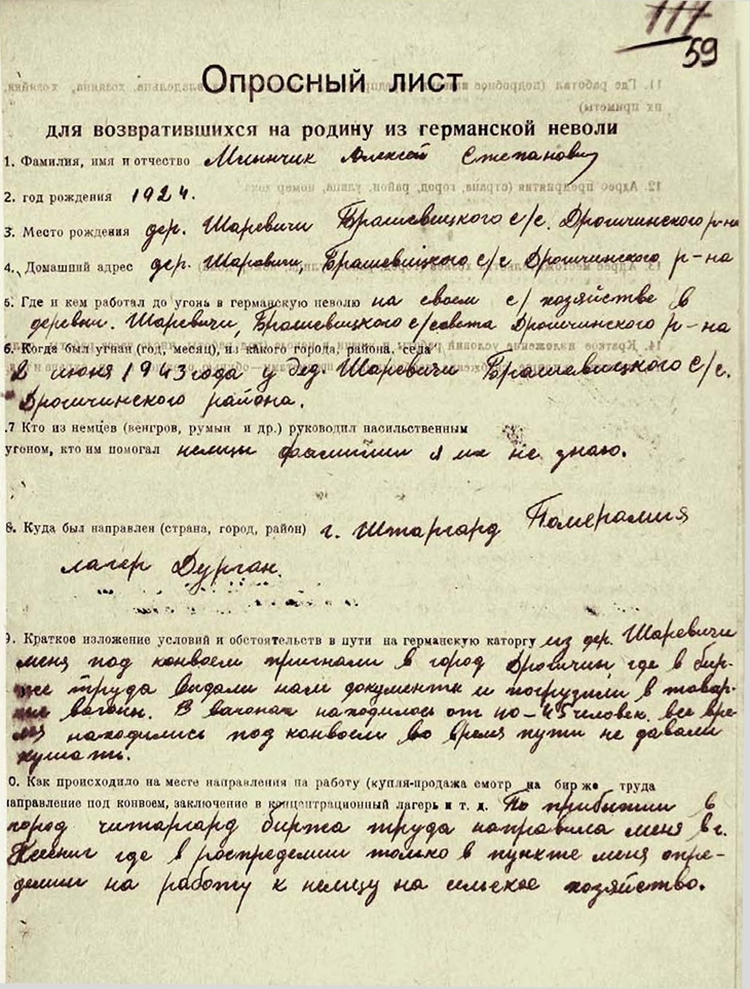 117
59
Опросный лист
для возвратившихся на родину из германской неволи
1. Фамилия, имя и отчество Алексей Степанович
2. год рождения 1924.
3. Место рождения дер. Шаревичи Брашевицкого с/с. Дрогичинского р-на
4. Домашний адрес дер. Шаревичи, Брашевицкого с/с Дрогичинского р-на
5. Где и кем работал до угона в германскую неволю на своем с/хозяйстве в
деревни. Шаревичи, Брашевицкого с/совета Дрогичинского р-на
6. Когда был угнан (год, месяц), из какого города, района, села
2 июня 1943 года у дер. Шаревичи Брашевицкого с/с.
Дрогичинского района.
7 Кто из немцев (венгров, румын и др.) руководил насильственным
угоном, кто им помогал немцы фамилии я их не знаю.
8. Куда был направлен (страна, город, район) г. Штаргард Померания
лагер Дурган.
9. Краткое изложение условий и обстоятельств в пути на германскую каторгу из дер. Шаревичи
меня под конвоем пригнали в город Дрогичин, где в бир-
же труда видали нам документы и погрузили в товар-
ные вагоны. В вагонах находилось от 40-45 человек. все вре-
мя находились под конвоем во время пути не давали
кушать.
0. Как происходило на месте направления на работу (купля-продажа смотр на бирже труда
направление под конвоем, заключение в концентрационный лагерь и т. д. По прибытии в
город читаргард биржа труда направила меня в г.
где в распределии только в пункте меня опре-
делии на работу к немцу на сельское хозяйство.